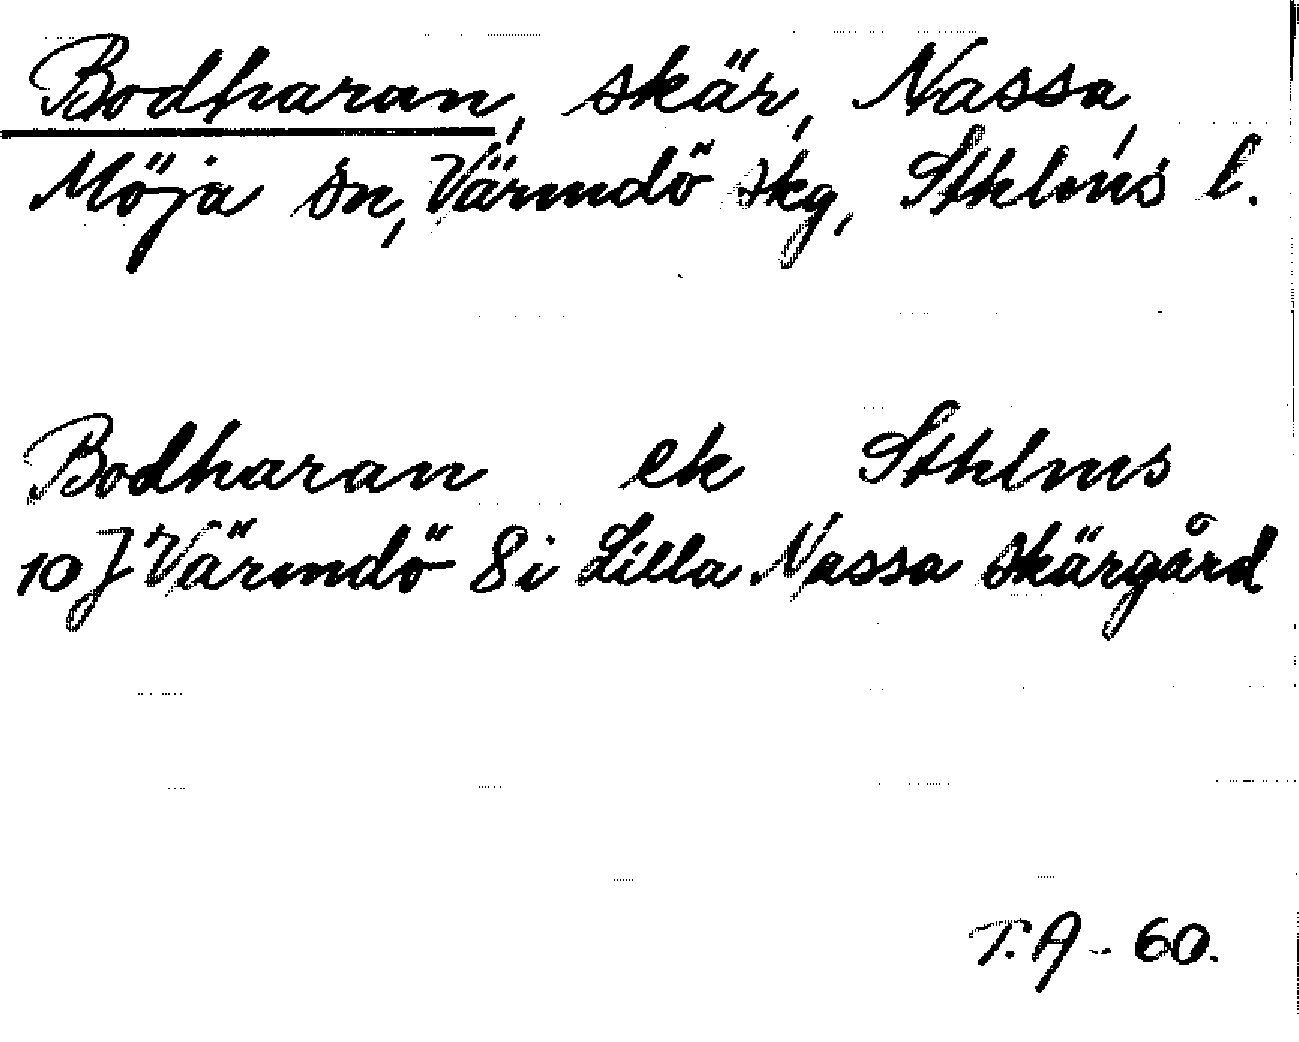 Bodharan, skär, Nassa,
Möja sn, Värmdö skg, Sthlms l.
Bodharan ek Sthlms
10J Värmdö 8i Lilla Nassa skärgård
T.A - 60.